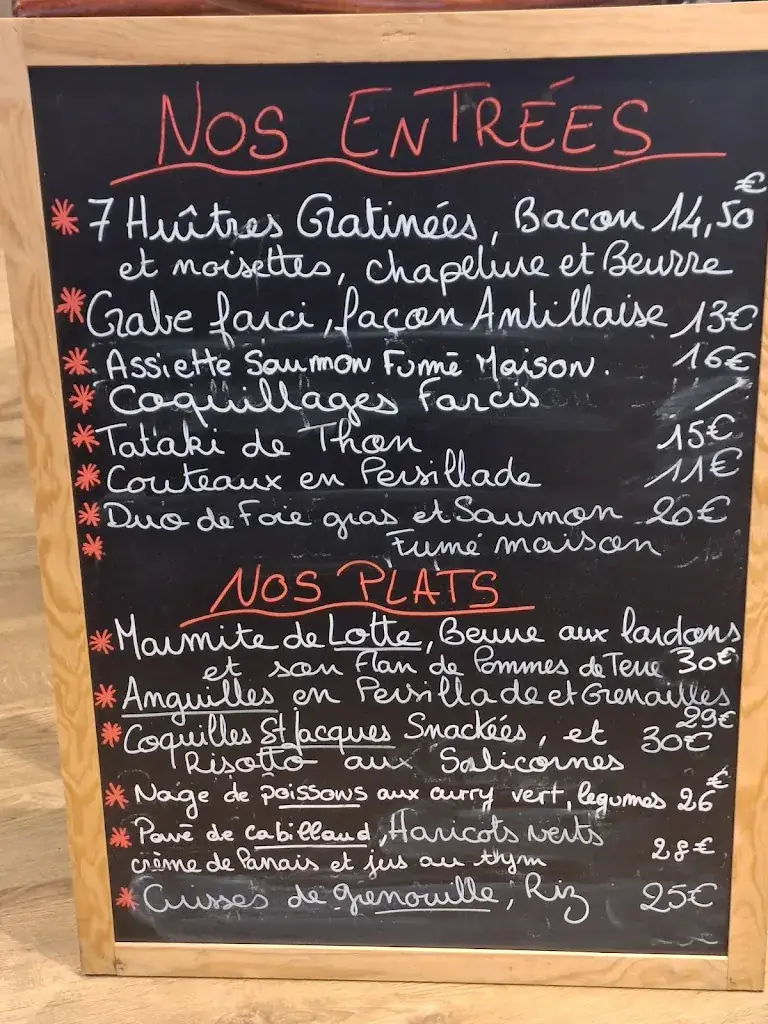 NOS ENTRÉES
* 7 Huîtres Gratinées, Bacon 14,50 €
et noisettes, chapelure et Beurre
* Crabe farci, façon Antillaise 13€
* Assiette Saumon Fumé Maison. 16€
* Coquillages Farcis /
* Tataki de Thon 15€
* Couteaux en Persillade 11€
* Duo de Foie gras et Saumon 20€
* Fumé maison
NOS PLATS
* Marmite de Lotte, Beurre aux lardons
et son Flan de Pommes de Terre 30€
* Anguilles en Persillade et Grenailles
29€
* Coquilles St Jacques Snackées, et 30€
Risotto aux Salicornes
* Nage de poissons aux curry vert, legumes 26€
* Pavé de cabillaud, Haricots verts
crème de Panais et jus au thym 28€
* Cuisses de grenouille, Riz 25€